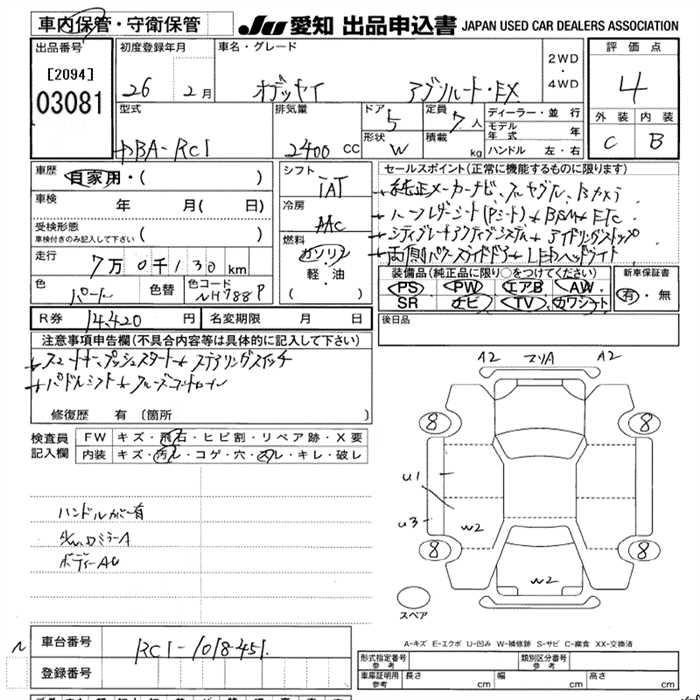 車内保管・守衛保管
JU 愛知 出品申込書 JAPAN USED CAR DEALERS ASSOCIATION
出品番号
[2094]
03081
初度登録年月
26年 2月
車名・グレード
オデッセイ アブソルート・EX
2WD
・
4WD
評価点
4
外装 内装
C B
型式
DBA-RC1
排気量
2400 CC
ドア
5
形状
W
定員
7人
積載
kg
ディーラー・並行
モデル年式 年
ハンドル 左・右
車歴
自家用・( )
車検 年 月( 日)
受検形態
車検付きのみ記入して下さい ( )
走行
7万0千130km
色
パール
色替
色コード
NH788P
シフト
IAT
冷房
AAC
燃料
ガソリン
軽・油
( )
セールスポイント(正常に機能するものに限ります)
純正メーカーナビ、フルセグTV、Bカメラ
ハーフレザーシート(Pシート) BSM ETC
シティブレーキアクティブシステム アイドリングストップ
両側パワースライドドア LEDヘッドライト
装備品(純正品に限り○をつけてください)
PS PW エアB AW
SR ナビ TV カワシート
新車保証書
有・無
後日品
R券 14,420円 名変期限 月 日
注意事項申告欄(不具合内容等は具体的に記入して下さい)
スマートキー プッシュスタート ステアリングスイッチ
パドルシフト クルーズコントロール
修復歴 有 〔箇所 〕
検査員
記入欄
FW キズ・飛石・ヒビ割・リペア跡・X要
内装 キズ・汚レ・コゲ・穴・スレ・キレ・破レ
ハンドルカバー有
ボディーAU
A2 マリA A2
8 8
U1
U3
W2
8 8
W2
スペア
A-キズ E-エクボ U-凹み W-補修跡 S-サビ C-腐食 XX-交換済
車台番号
RC1-1018451
登録番号
形式指定番号
参考
類別区分番号
参考
車庫証明用
参考
長さ cm 幅 cm 高さ cm